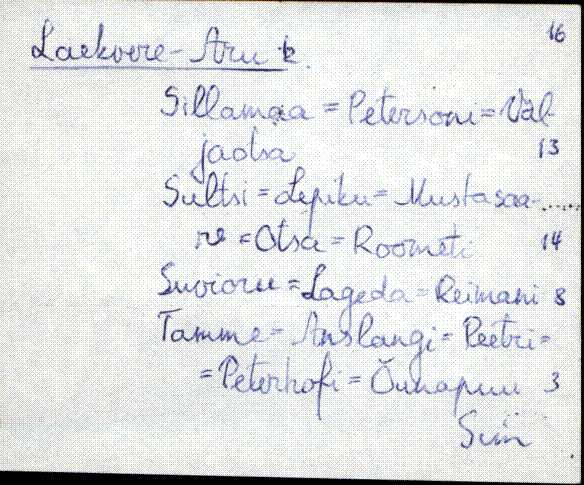 16
Laekvere-Aru k.
Sillamaa = Petersoni = Väl-
jaotsa 13
Sultsi = Lepiku = Mustasaa-.....
re = Otsa = Roometi 14
Suvioru = Lageda = Reimani 8
Tamme = Anslangi = Peetri =
= Peterhofi = Õunapuu 3